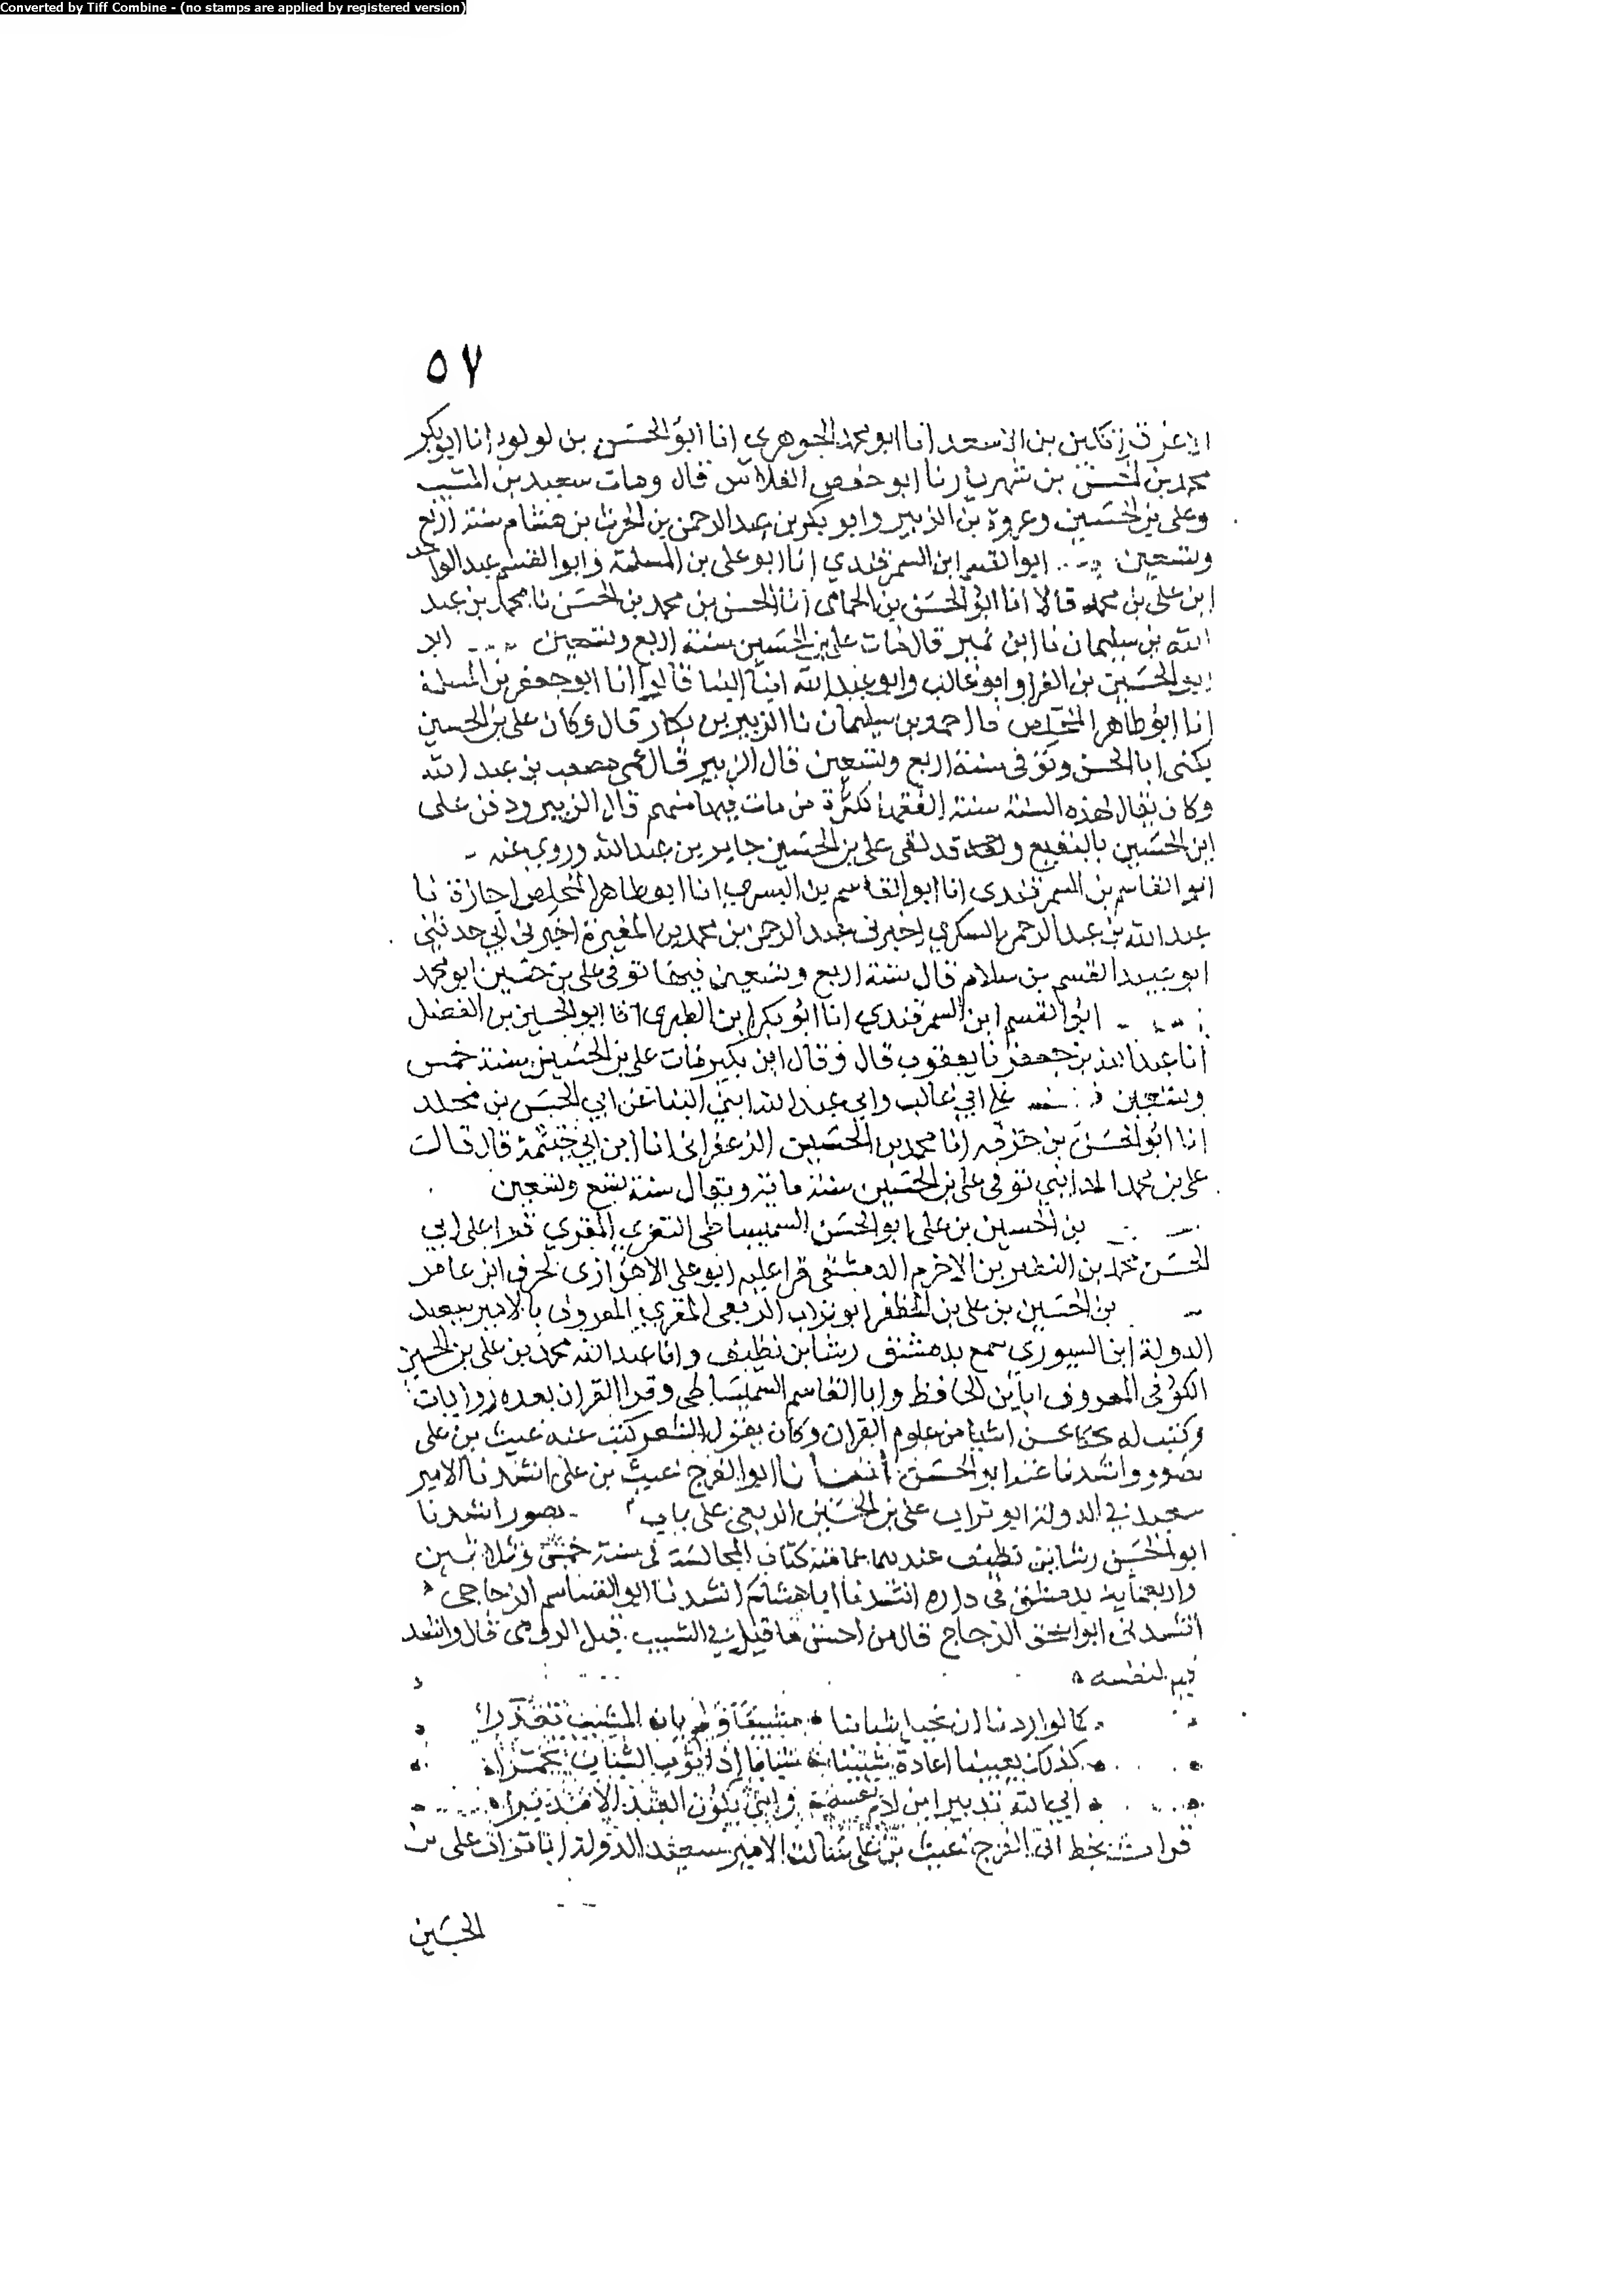 Converted by Tiff Combine - (no stamps are applied by registered version)
٥٧
الاعز قراتكين بن الاسعد انا ابو محمد الجوهري انا ابو الحسن بن لولو انا ابو بكر
محمد بن الحسين بن شهريار نا ابو حفص الفلاس قال ومات سعيد بن المسيب
وعلى بن الحسين وعروة بن الزبير وابو بكر بن عبد الرحمن بن الحرث بن هشام سنة اربع
وتسعين ابو القسم ابن السمرقندي انا ابو على بن المسلمة وابو القسم عبد الواحد
ابن على بن محمد قالا انا ابو الحسن بن الحمامى انا الحسن بن محمد بن الحسن نا محمد بن عبد
الله بن سليمان نا ابن نمير قال مات على بن الحسين سنة اربع وتسعين
ابو الحسين بن الفرا وابو غالب وابو عبد الله ابنا البنا قالوا انا ابو جعفر بن المسلمة
انا ابو طاهر المخلص نا احمد بن سليمان نا الزبير بن بكار قال وكان على بن الحسين
يكنى ابا الحسن وتوفى سنة اربع وتسعين قال الزبير قال عمى مصعب بن عبد الله
وكان يقال لهذه السنة سنة الفقها لكثرة من مات فيها منهم قال الزبير ودفن على
ابن الحسين بالبقيع وقد لقى على بن الحسين جابر بن عبد الله وروي عنه
ابو القاسم بن السمرقندى انا ابو القاسم بن البسري انا ابو طاهر المخلص اجازة نا
عبد الله بن عبد الرحمن السكري اخبرنى عبد الرحمن بن محمد بن المغيرة اخبرنى ابي حدثني
ابو عبيد القسم بن سلام قال سنة اربع وتسعين فيها توفى على بن حسين ابو محمد
ابو القسم ابن السمرقندي انا ابو بكر ابن الطبرى انا ابو الحسين بن الفضل
انا عبد الله بن جعفر نا يعقوب قال وقال ابن بكير مات على بن الحسين سنة خمس
وتسعين على ابي غالب وابي عبد الله ابني البنا عن ابي الحسن بن مخلد
انا ابو الحسن بن خزفه انا محمد بن الحسين الزعفرانى انا ابن ابي خيثمة قال قالت
على بن محمد المدايني توفى على بن الحسين سنة مائة ويقال سنة تسع وتسعين
بن الحسين بن على ابو الحسن السميساطى الثغري المقري قرا على ابي
الحسن محمد بن النضر بن الاخرم الدمشقى قرا عليه ابو على الاهوازى لحرف ابن عامر
بن الحسين بن على بن المظفر ابو تراب الربعى المقري المعروف بالامير سعيد
الدولة ابن السيوري سمع بدمشق رشا بن نظيف وانا عبد الله محمد بن على بن الحسين
الكوفى المعروف بابن الحافظ وابا القاسم السميساطى وقرا القران بعدة روايات
وكتب له اشيا من علوم القران وكان يقول الشعر كتب عنه غيث بن على
بصور وانشدنا عنه ابو الحسن نا ابو الفرج غيث بن على انشدنا الامير
سعيد الدولة ابو تراب على بن الحسين الربعى على باب بصور انشدنا
ابو الحسن رشا بن نظيف عند سماعنا منه كتاب المجالسة فى سنة خمس وثلاثين
واربعماية بدمشق فى داره انشدنا ابا هشام انشدنا ابو القاسم الزجاجى
انشدنى ابو اسحق الزجاج قال من احسن ما قيل في الشيب قيل الرومى قال وانشد
فيه لنفسه
كما لو اردنا ان نحيل شبابنا مشيبا ولم يان المشيب تعذرا
كذلك يعيينا اعادة شيبنا شبابا اذا ثوب الشباب تحسرا
ابي الله تدبير ابن ادم نفسه وانى يكون العبد الا مدبرا
قرات بخط ابي الفرج غيث بن على سالت الامير سعيد الدولة ابا تراب على بن
الحسين